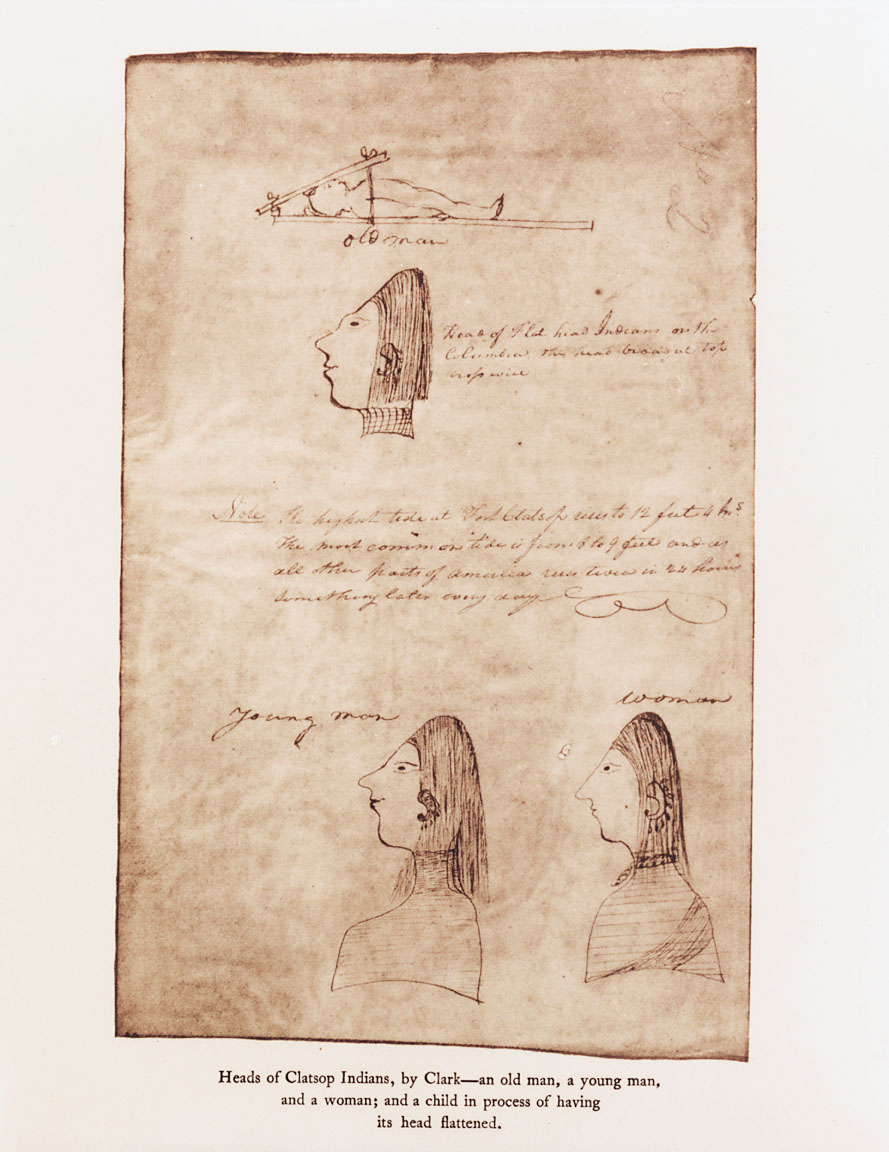 old man
Head of Flat head Indians on the
Columbia the head broad at top
crosswise
Note The highest tide at Fort Clatsop rises to 12 feet 4 Ins
The most common tide is from 8 to 9 feet and as
all other parts of america rises twice in 24 hours
something later every day
young man
woman
Heads of Clatsop Indians, by Clark—an old man, a young man,
and a woman; and a child in process of having
its head flattened.